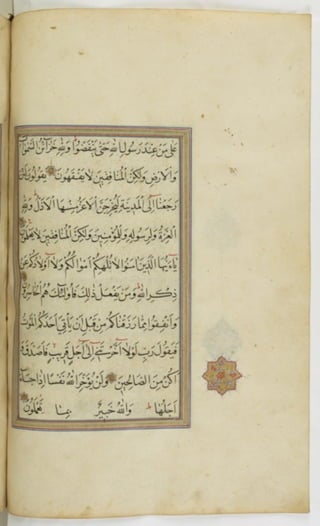 عَلَىٰ مَنْ عِنْدَ رَسُولِ اللهِ حَتَّىٰ يَنْفَضُّوا وَلِلّٰهِ خَزَائِنُ السَّمٰوَاتِ
وَالْاَرْضِ وَلٰكِنَّ الْمُنَافِقِينَ لَا يَفْقَهُونَ يَقُولُونَ لَئِنْ
رَجَعْنَا اِلَى الْمَدِينَةِ لَيُخْرِجَنَّ الْاَعَزُّ مِنْهَا الْاَذَلَّ وَلِلّٰهِ
الْعِزَّةُ وَلِرَسُولِهِ وَلِلْمُؤْمِنِينَ وَلٰكِنَّ الْمُنَافِقِينَ لَا يَعْلَمُونَ
يَا اَيُّهَا الَّذِينَ اٰمَنُوا لَا تُلْهِكُمْ اَمْوَالُكُمْ وَلَا اَوْلَادُكُمْ عَنْ
ذِكْرِ اللهِ وَمَنْ يَفْعَلْ ذٰلِكَ فَاُولٰئِكَ هُمُ الْخَاسِرُونَ
وَاَنْفِقُوا مِمَّا رَزَقْنَاكُمْ مِنْ قَبْلِ اَنْ يَأْتِيَ اَحَدَكُمُ الْمَوْتُ
فَيَقُولَ رَبِّ لَوْلَا اَخَّرْتَنِي اِلَىٰ اَجَلٍ قَرِيبٍ فَاَصَّدَّقَ وَ
اَكُنْ مِنَ الصَّالِحِينَ وَلَنْ يُؤَخِّرَ اللهُ نَفْسًا اِذَا جَاءَ
اَجَلُهَا وَاللهُ خَبِيرٌ بِمَا تَعْمَلُونَ